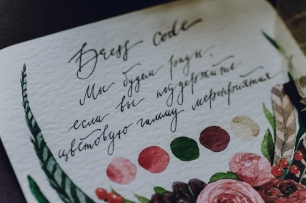 Dress code
Мы будем рады,
если вы поддержите
цветовую гамму мероприятия